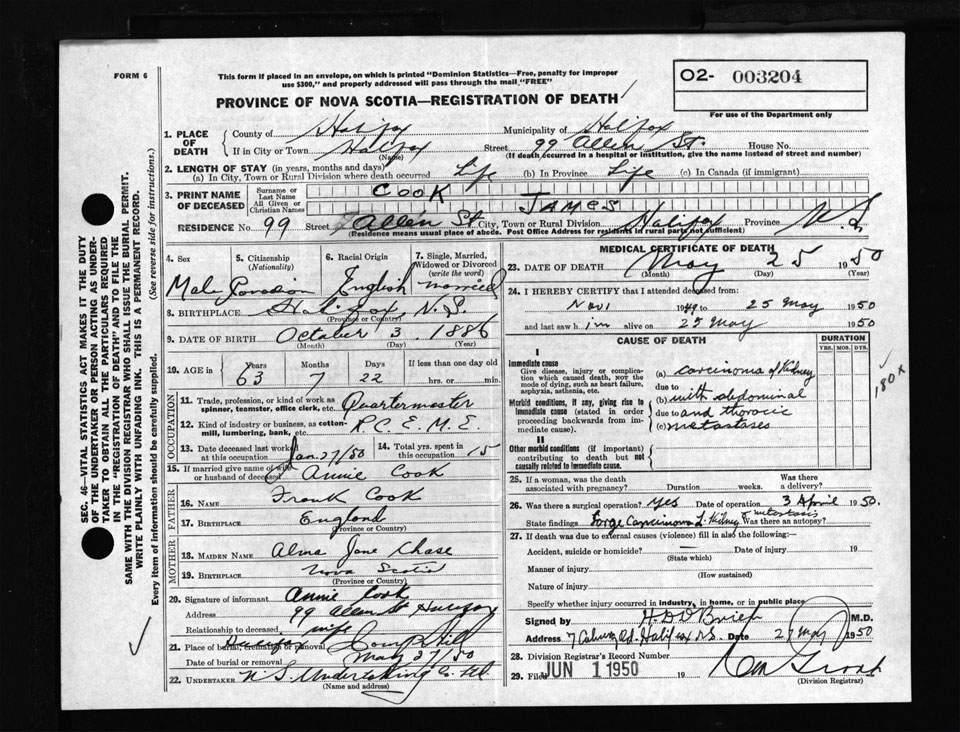 FORM 6
This form if placed in an envelope, on which is printed "Dominion Statistics—Free, penalty for improper
use $300," and properly addressed will pass through the mail "FREE"
O2- 003204
PROVINCE OF NOVA SCOTIA—REGISTRATION OF DEATH
For use of the Department only
1. PLACE OF DEATH
County of Halifax Municipality of Halifax
If in City or Town Halifax Street 99 Allen St. House No.
(Name) (If death occurred in a hospital or institution, give the name instead of street and number)
2. LENGTH OF STAY (in years, months and days)
(a) In City, Town or Rural Division where death occurred Life (b) In Province Life (c) In Canada (if immigrant)
3. PRINT NAME OF DECEASED
Surname or Last Name COOK
All Given or Christian Names JAMES
RESIDENCE No. 99 Street Allen St City, Town or Rural Division Halifax Province N.S.
(Residence means usual place of abode. Post Office Address for residents in rural parts not sufficient)
4. Sex
Male
5. Citizenship
(Nationality)
Canadian
6. Racial Origin
English
7. Single, Married, Widowed or Divorced
(write the word)
married
8. BIRTHPLACE Halifax, N.S.
(Province or Country)
9. DATE OF BIRTH October 3 1886
(Month) (Day) (Year)
10. AGE in
Years Months Days If less than one day old
63 7 22 hrs. or min.
OCCUPATION
11. Trade, profession or kind of work as spinner, teamster, office clerk, etc. Quartermaster
12. Kind of industry or business, as cotton-mill, lumbering, bank, etc. R.C.E.M.E.
13. Date deceased last worked at this occupation Jan. 27/50
14. Total yrs. spent in this occupation 15
15. If married give name of wife or husband of deceased Annie Cook
FATHER
16. NAME Frank Cook
17. BIRTHPLACE England
(Province or Country)
MOTHER
18. MAIDEN NAME Alma Jane Chase
19. BIRTHPLACE Nova Scotia
(Province or Country)
20. Signature of informant Annie Cook
Address 99 Allen St Halifax
Relationship to deceased wife
21. Place of burial, cremation or removal Camp Hill
Date of burial or removal May 27/50
22. UNDERTAKER N.S. Undertaking Co. Ltd.
(Name and address)
MEDICAL CERTIFICATE OF DEATH
23. DATE OF DEATH May 25 1950
(Month) (Day) (Year)
24. I HEREBY CERTIFY that I attended deceased from:
Nov 1 1949 to 25 May 1950
and last saw him alive on 25 May 1950
CAUSE OF DEATH
DURATION
YRS. MOS. DYS.
I
Immediate cause
Give disease, injury or complication which caused death, nor the mode of dying, such as heart failure, asphyxia, asthenia, etc.
Morbid conditions, if any, giving rise to immediate cause (stated in order proceeding backwards from immediate cause).
II
Other morbid conditions (if important) contributing to death but not causally related to immediate cause.
(a) carcinoma of Kidney
due to
(b) with abdominal
due to and thoracic
(c) metastases
180x
25. If a woman, was the death associated with pregnancy? Duration weeks. Was there a delivery?
26. Was there a surgical operation? Yes Date of operation 3 April 1950.
State findings Large Carcinoma L. Kidney metastasis Was there an autopsy?
27. If death was due to external causes (violence) fill in also the following:—
Accident, suicide or homicide? — Date of injury 19
(State which)
Manner of injury
(How sustained)
Nature of injury
Specify whether injury occurred in industry, in home, or in public place
Signed by H.D. O'Brien M.D.
Address Halifax N.S. Date 27 May 1950
28. Division Registrar's Record Number
29. Filed JUN 1 1950 19
(Division Registrar)
SEC. 46—VITAL STATISTICS ACT MAKES IT THE DUTY
OF THE UNDERTAKER OR PERSON ACTING AS UNDER-
TAKER TO OBTAIN ALL THE PARTICULARS REQUIRED
IN THE "REGISTRATION OF DEATH" AND TO FILE THE
SAME WITH THE DIVISION REGISTRAR WHO SHALL ISSUE THE BURIAL PERMIT.
WRITE PLAINLY WITH UNFADING INK. THIS IS A PERMANENT RECORD.
Every item of information should be carefully supplied. (See reverse side for instructions.)